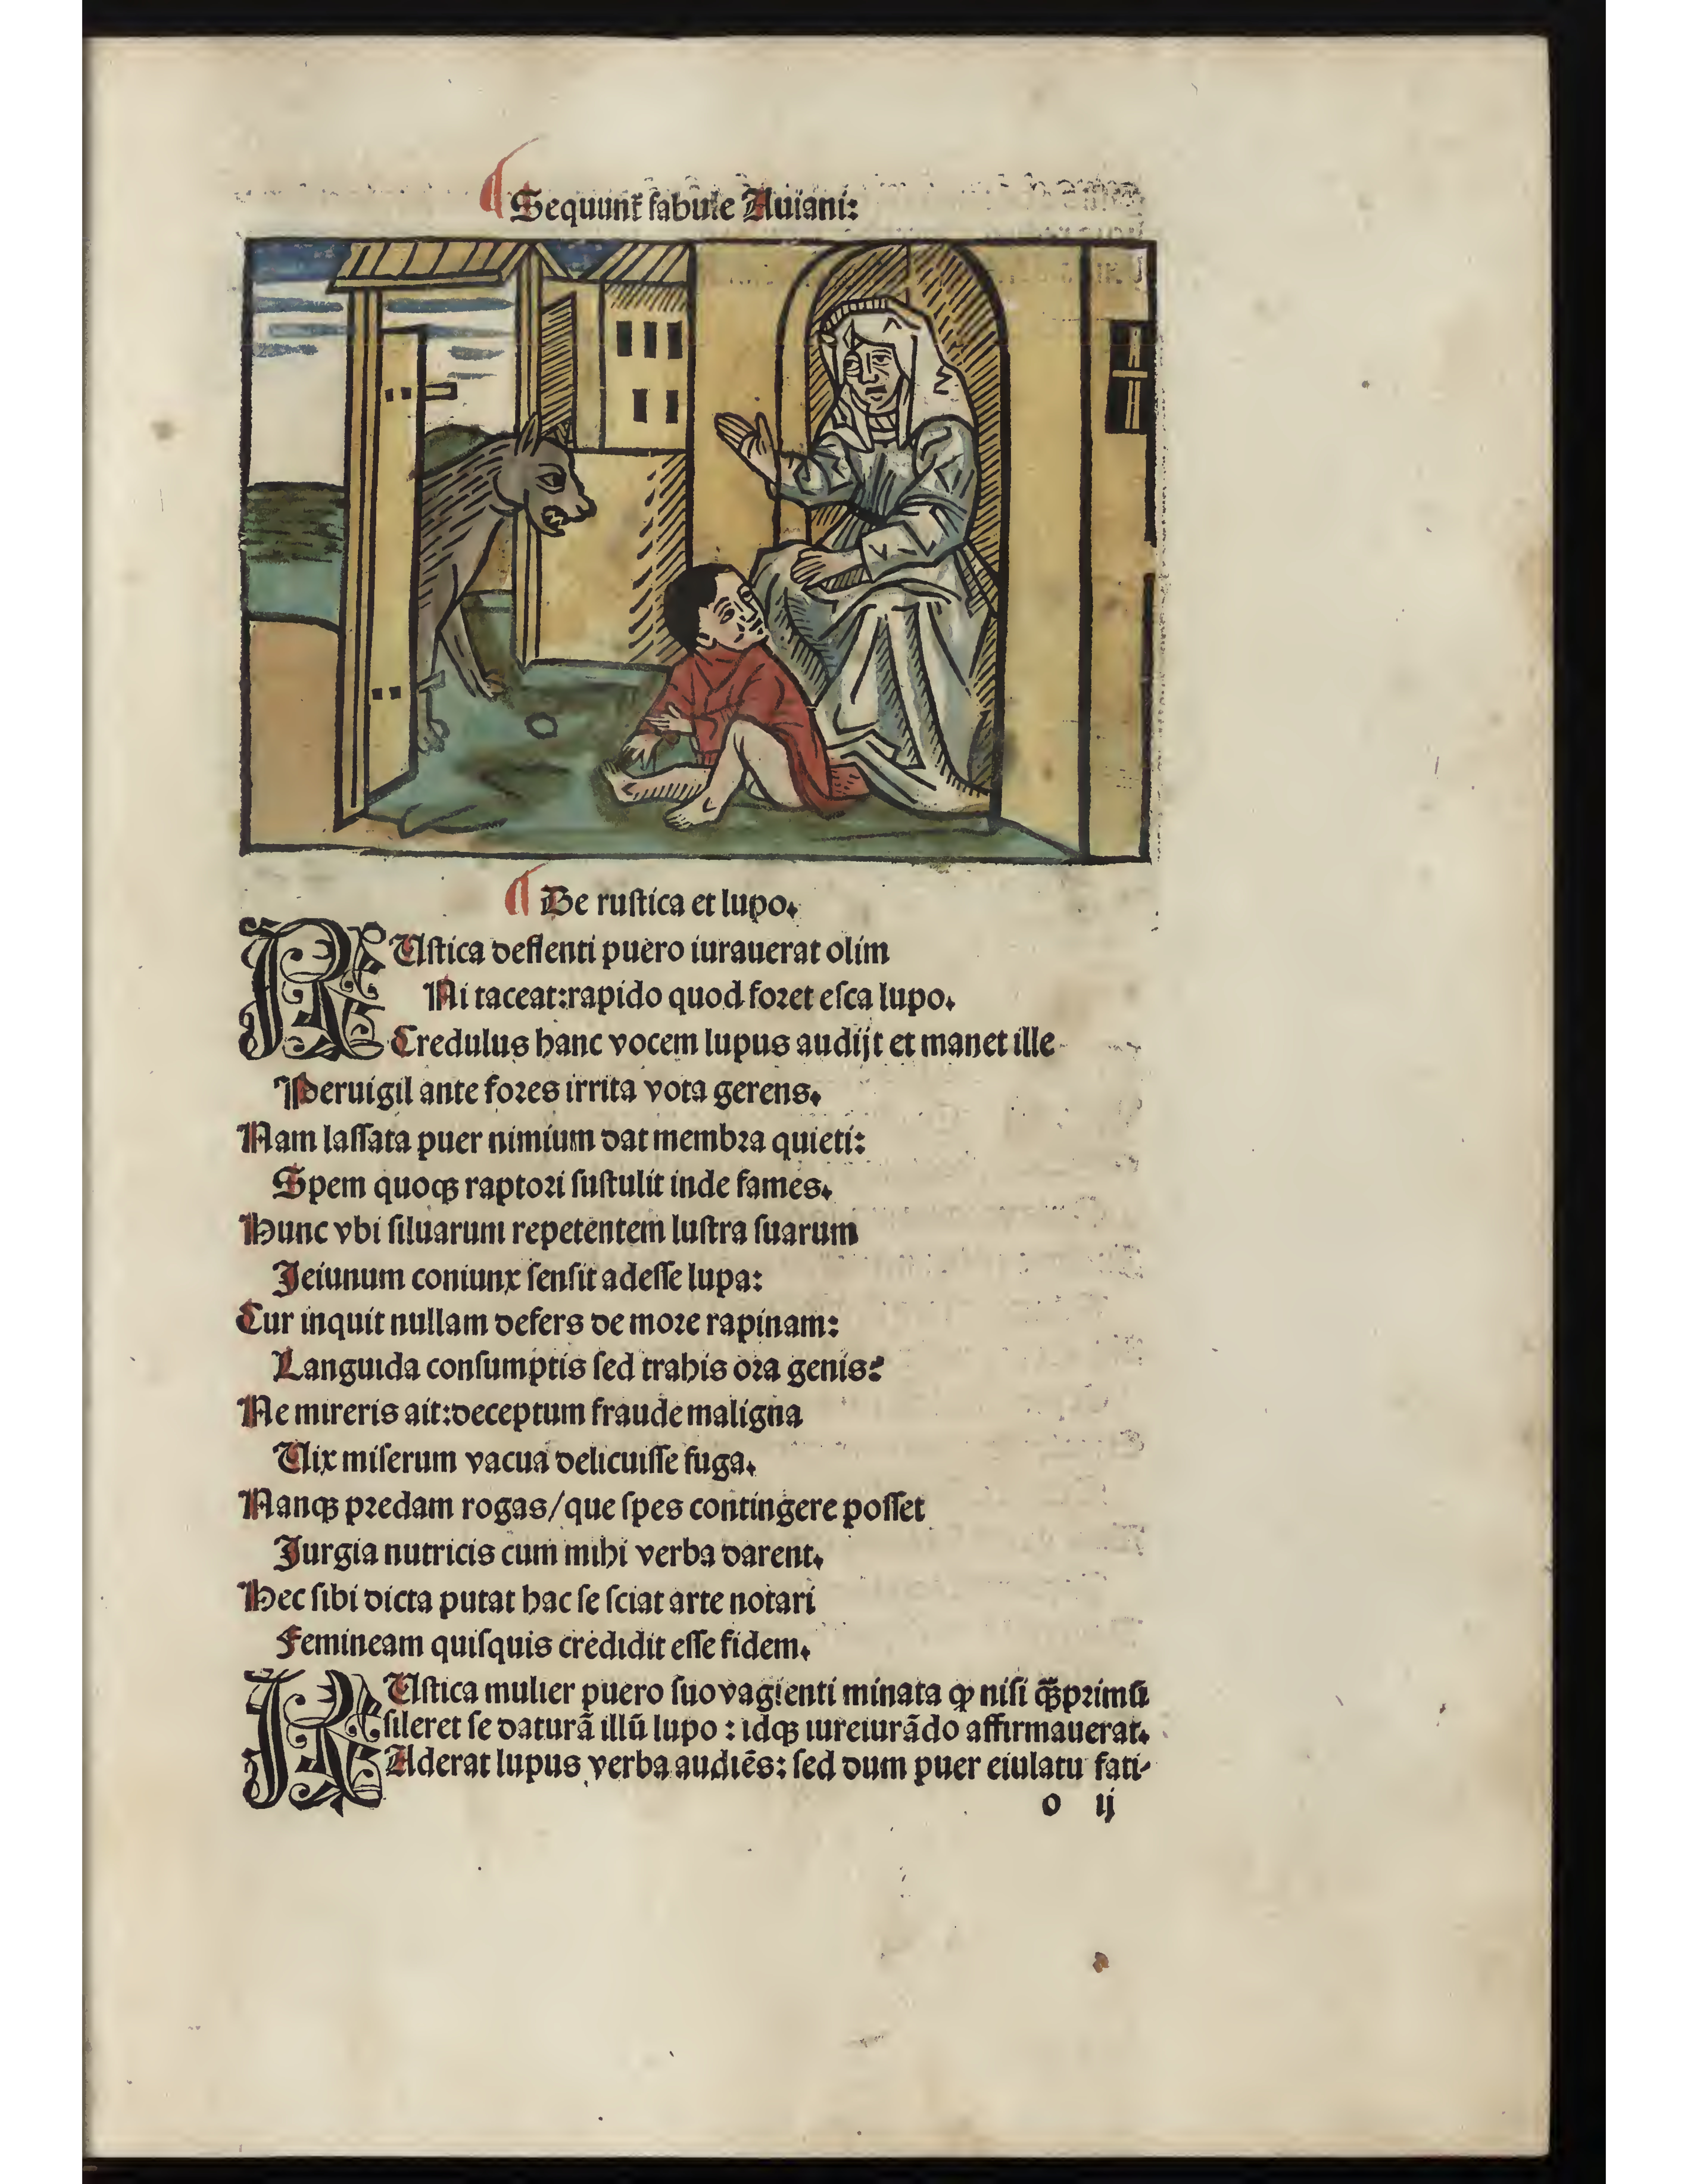 ¶ Sequunt᷑ fabule Auiani:
¶ De ruſtica et lupo.
RUſtica deflenti puero iurauerat olim
Ni taceat:rapido quod foꝛet eſca lupo.
Credulus hanc vocem lupus audijt et manet ille
Peruigil ante foꝛes irrita vota gerens.
Nam laſſata puer nimium dat membꝛa quieti:
Spem quoqꝫ raptoꝛi ſuſtulit inde fames.
Hunc vbi ſiluarum repetentem luſtra ſuarum
Jeiunum coniunx ſenſit adeſſe lupa:
Cur inquit nullam defers de moꝛe rapinam:
Languida conſumptis ſed trahis oꝛa genis?
Ne mireris ait:deceptum fraude maligna
Uix miſerum vacua delicuiſſe fuga.
Nanqꝫ pꝛedam rogas/que ſpes contingere poſſet
Jurgia nutricis cum mihi verba darent.
Hec ſibi dicta putat hac ſe ſciat arte notari
Femineam quiſquis credidit eſſe fidem.
RUſtica mulier puero ſuo vagienti minata ꝙ niſi qꝫ̄pꝛimū
ſileret ſe daturā illū lupo : idqꝫ iureiurādo affirmauerat.
Aderat lupus verba audiēs: ſed dum puer eiulatu fati-
o ij